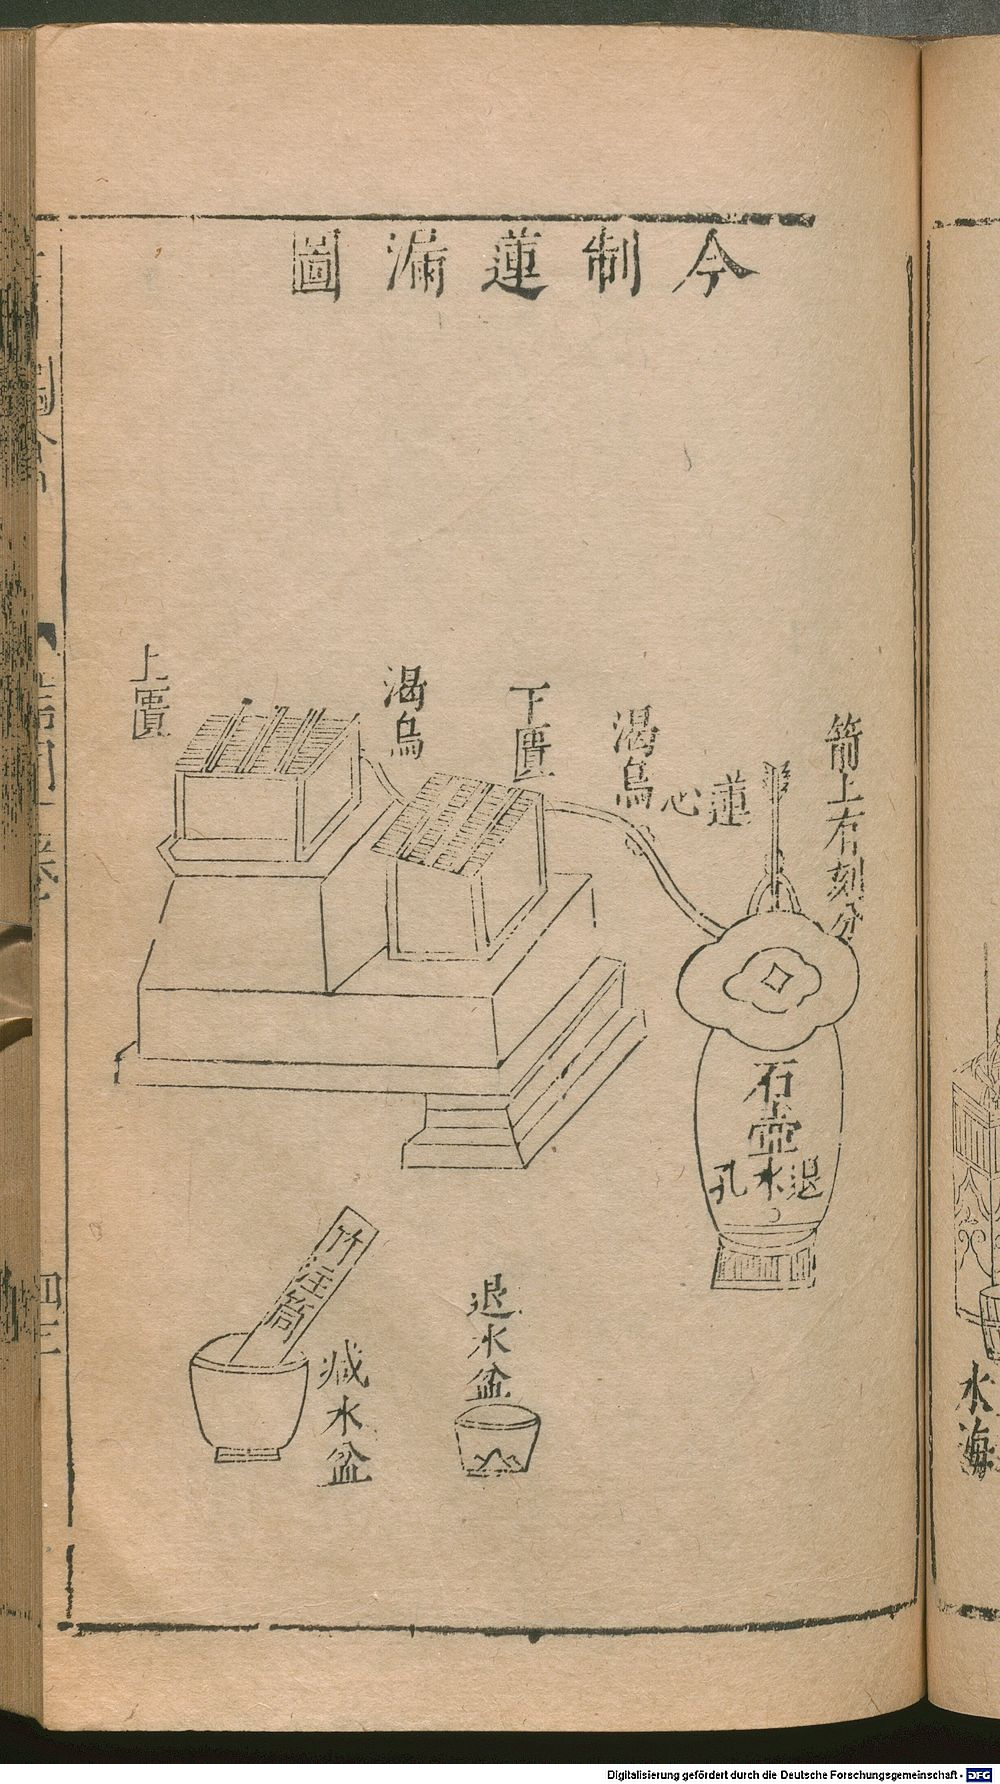 今制蓮漏圖
箭上有刻分
蓮心
渴烏
下匱
渴烏
上匱
石壺
退水孔
退水盆
竹注筒
臧水盆
水海
Digitalisierung gefördert durch die Deutsche Forschungsgemeinschaft - DFG